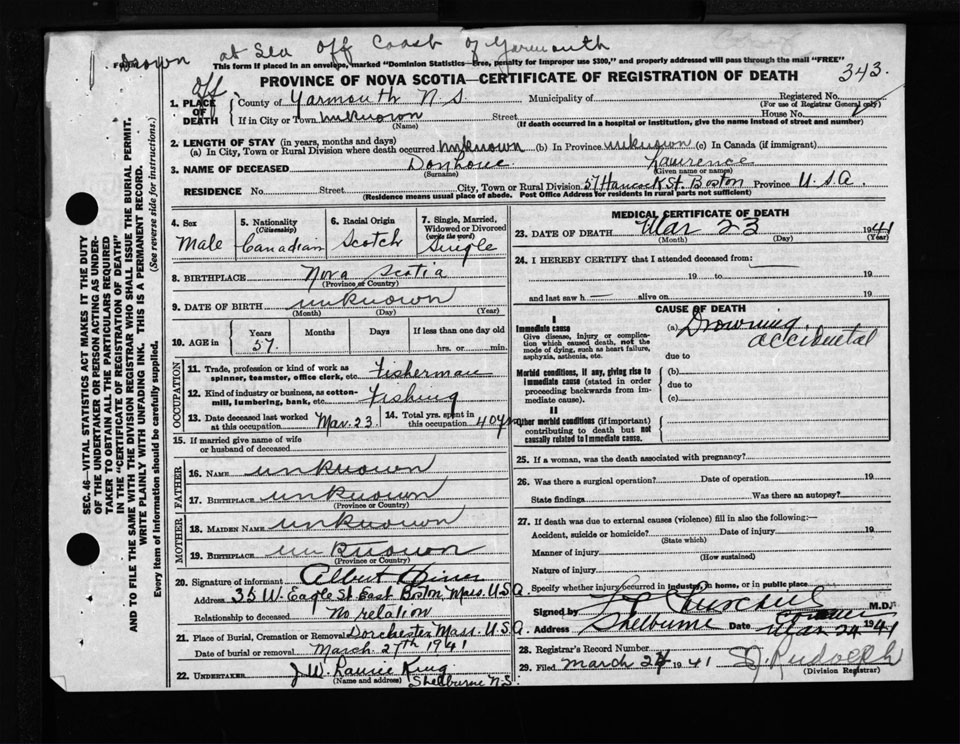 Drown at Sea Off Coast of Yarmouth
This form if placed in an envelope, marked "Dominion Statistics—Free, penalty for improper use $300," and properly addressed will pass through the mail "FREE"
PROVINCE OF NOVA SCOTIA—CERTIFICATE OF REGISTRATION OF DEATH 343.
off
1. PLACE OF DEATH
County of Yarmouth N.S. Municipality of Registered No.
(For use of Registrar General only)
If in City or Town unknown Street House No.
(Name) (If death occurred in a hospital or institution, give the name instead of street and number)
2. LENGTH OF STAY (in years, months and days)
(a) In City, Town or Rural Division where death occurred unknown (b) In Province unknown (c) In Canada (if immigrant)
3. NAME OF DECEASED Lawrence
(Surname) (Given name or names)
RESIDENCE No. Street City, Town or Rural Division 57 Hancock St. Boston Province U.S.A.
(Residence means usual place of abode. Post Office Address for residents in rural parts not sufficient)
SEC. 46—VITAL STATISTICS ACT MAKES IT THE DUTY
OF THE UNDERTAKER OR PERSON ACTING AS UNDER-
TAKER TO OBTAIN ALL THE PARTICULARS REQUIRED
IN THE "CERTIFICATE OF REGISTRATION OF DEATH"
AND TO FILE THE SAME WITH THE DIVISION REGISTRAR WHO SHALL ISSUE THE BURIAL PERMIT.
WRITE PLAINLY WITH UNFADING INK. THIS IS A PERMANENT RECORD.
Every item of Information should be carefully supplied. (See reverse side for instructions.)
4. Sex
Male
5. Nationality
(Citizenship)
Canadian
6. Racial Origin
Scotch
7. Single, Married,
Widowed or Divorced
(write the word)
Single
8. BIRTHPLACE Nova Scotia
(Province or Country)
9. DATE OF BIRTH unknown
(Month) (Day) (Year)
10. AGE in
Years Months Days If less than one day old
57. hrs. or min.
OCCUPATION
11. Trade, profession or kind of work as
spinner, teamster, office clerk, etc. Fisherman
12. Kind of industry or business, as cotton-
mill, lumbering, bank, etc. Fishing
13. Date deceased last worked
at this occupation Mar. 23.
14. Total yrs. spent in
this occupation 40 yrs
15. If married give name of wife
or husband of deceased
FATHER
16. NAME unknown
17. BIRTHPLACE unknown
(Province or Country)
MOTHER
18. MAIDEN NAME unknown
19. BIRTHPLACE unknown
(Province or Country)
20. Signature of informant Albert
Address 35 W. Eagle St. East Boston, Mass. U.S.A.
Relationship to deceased No relation
21. Place of Burial, Cremation or Removal Dorchester Mass. U.S.A.
Date of burial or removal March 27th 1941
22. UNDERTAKER J.W.
(Name and address) Shelburne N.S.
MEDICAL CERTIFICATE OF DEATH
23. DATE OF DEATH Mar 23 1941
(Month) (Day) (Year)
24. I HEREBY CERTIFY that I attended deceased from:
19 to 19
and last saw h— alive on 19
CAUSE OF DEATH
I
Immediate cause
Give disease, injury or complica-
tion which caused death, not the
mode of dying, such as heart failure,
asphyxia, asthenia, etc.
(a) Drowning,
accidental
due to
Morbid conditions, if any, giving rise to
immediate cause (stated in order
proceeding backwards from im-
mediate cause).
(b)
due to
(c)
II
Other morbid conditions (if important)
contributing to death but not
causally related to immediate cause.
25. If a woman, was the death associated with pregnancy?
26. Was there a surgical operation? Date of operation 19
State findings Was there an autopsy?
27. If death was due to external causes (violence) fill in also the following:—
Accident, suicide or homicide? Date of injury 19
(State which)
Manner of injury
(How sustained)
Nature of injury
Specify whether injury occurred in industry, in home, or in public place
Signed by M.D.
Address Shelburne Date Mar 24 1941
28. Registrar's Record Number
29. Filed March 24 1941 Rudolph
(Division Registrar)